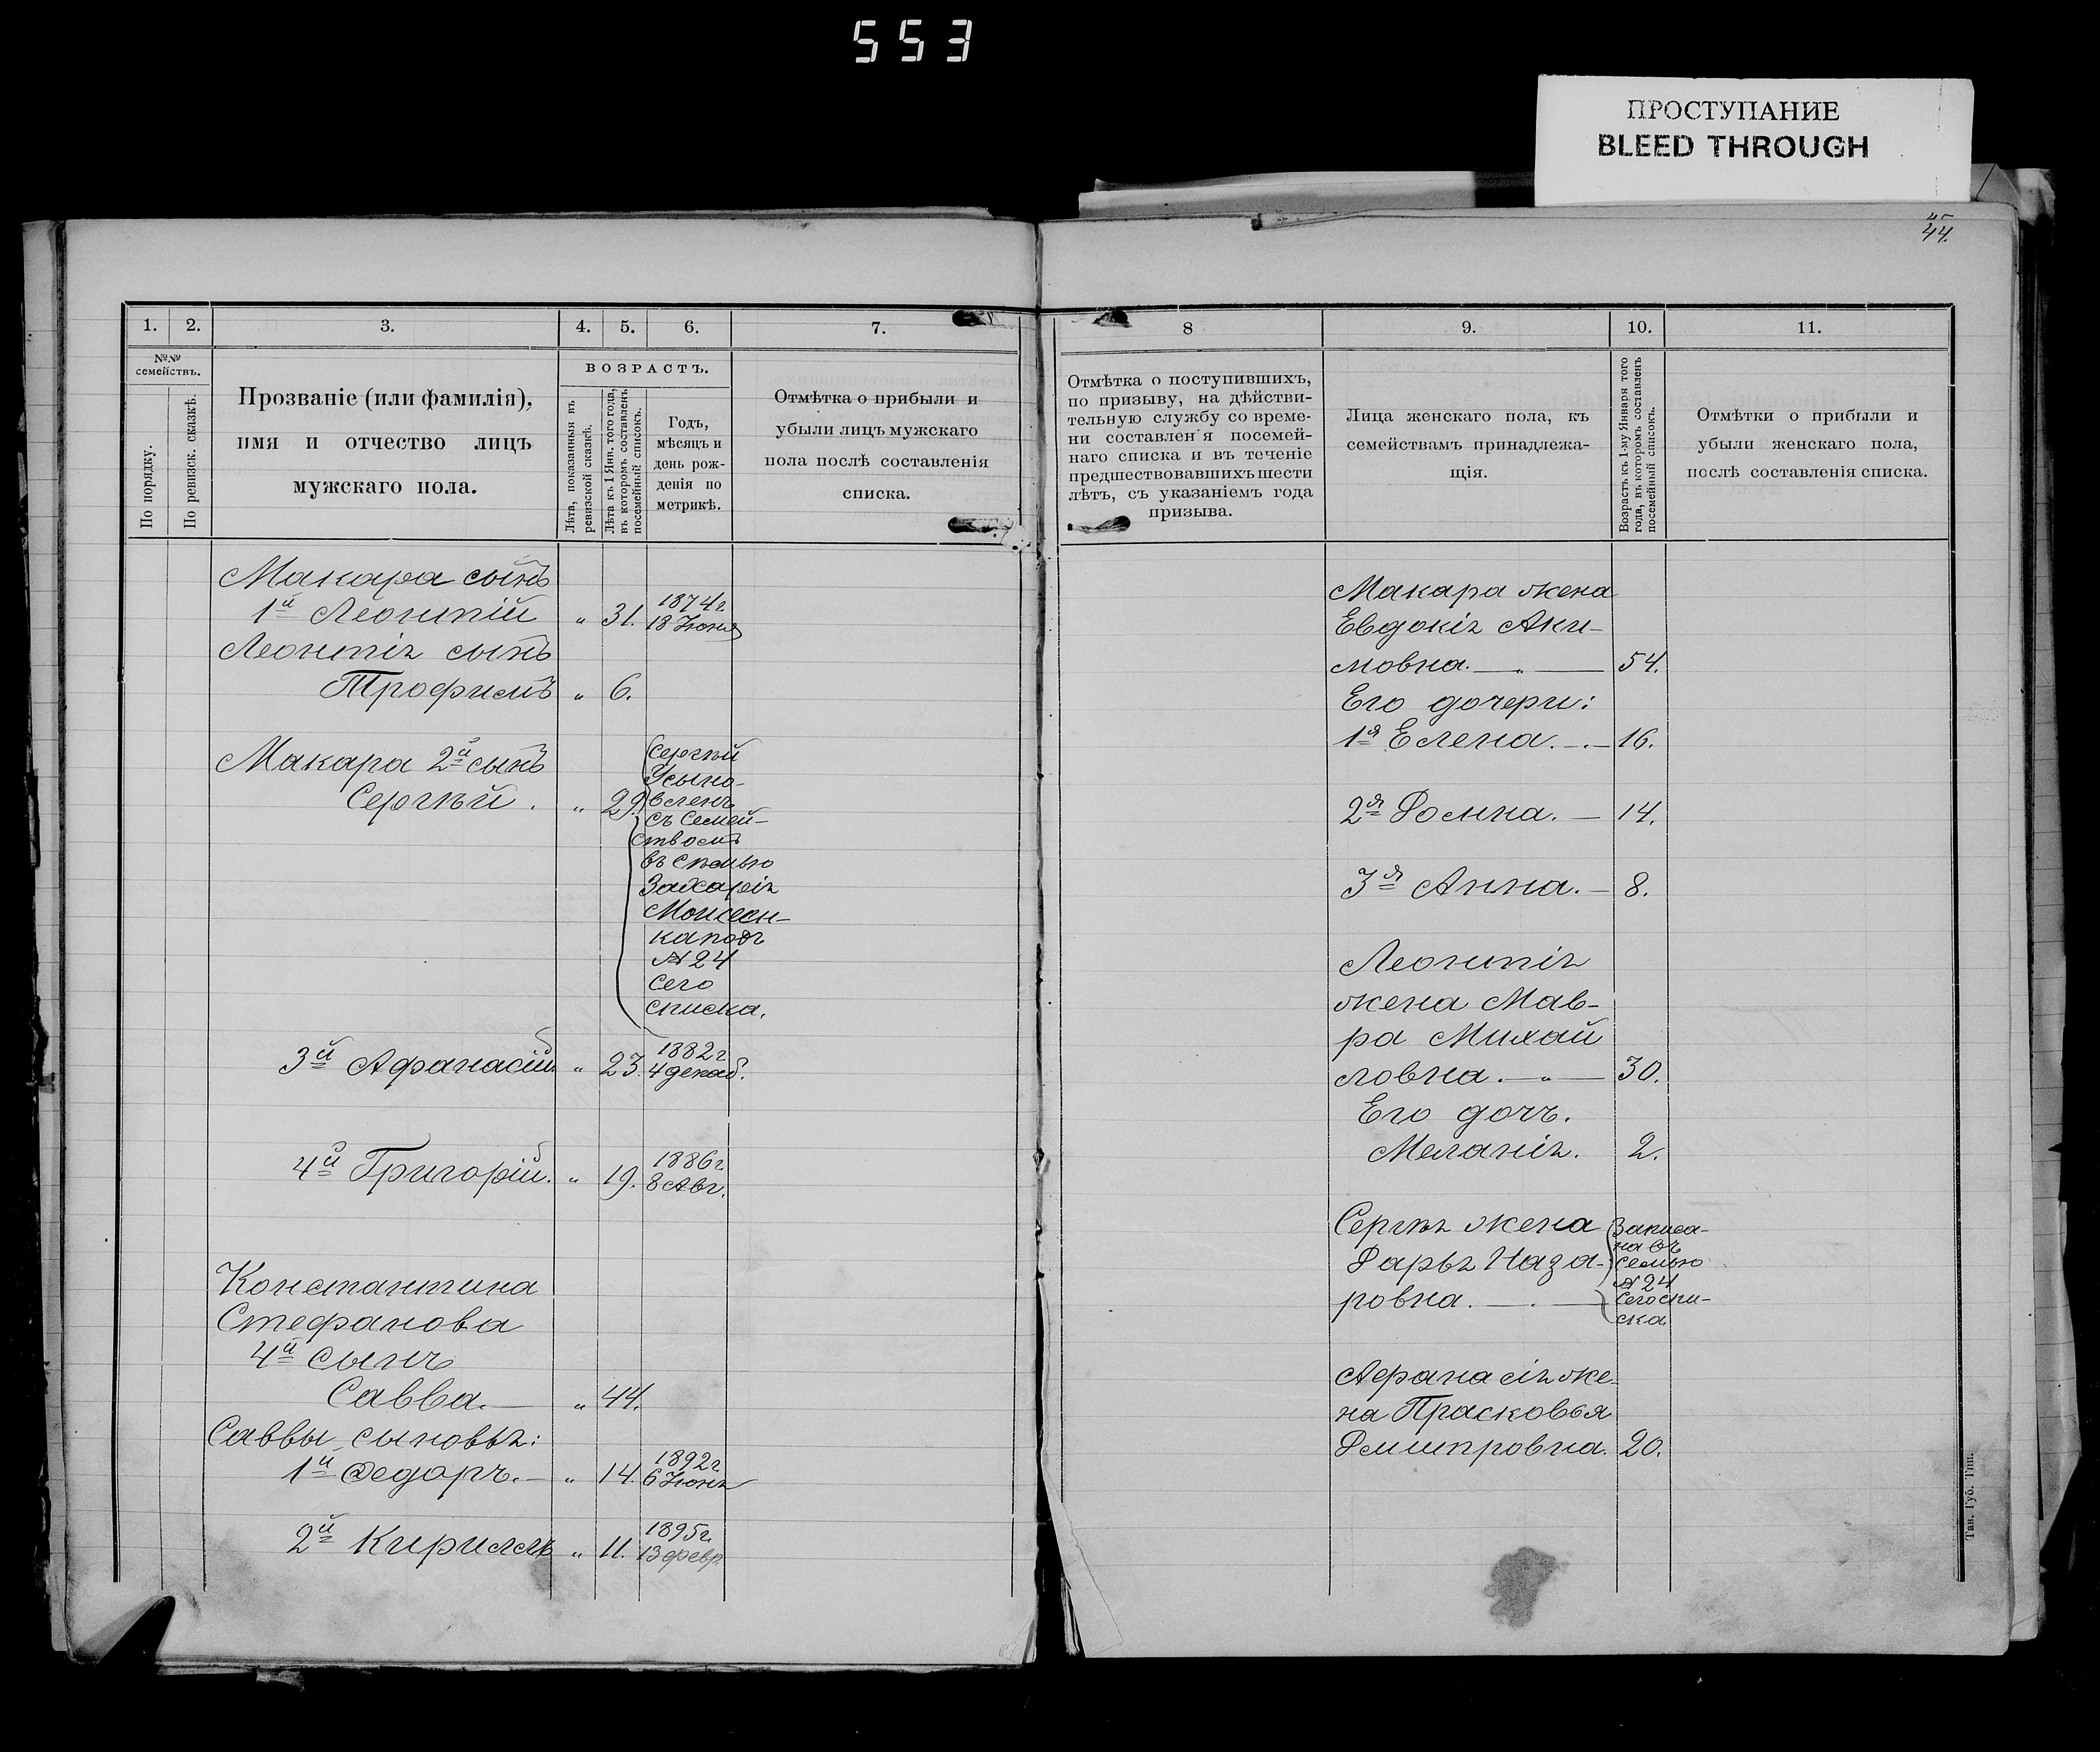 553
ПРОСТУПАНИЕ
BLEED THROUGH
45
44.
1.
2.
3.
4.
5.
6.
7.
№№
семействъ.
По порядку.
По ревизск. сказкѣ.
Прозваніе (или фамилія),
имя и отчество лицъ
мужскаго пола.
ВОЗРАСТЪ.
Лѣта, показанныя въ
ревизской сказкѣ.
Лѣта къ 1 Янв. того года,
въ которомъ составленъ
посемейный списокъ.
Годъ,
мѣсяцъ и
день рож-
денія по
метрикѣ.
Отмѣтка о прибыли и
убыли лицъ мужскаго
пола послѣ составленія
списка.
Макара сынъ
1й Леонтій „ 31. 1874г.
18 Іюня
Леонтія сынъ
Трофимъ „ 6.
Макара 2й сынъ
Сергѣй. „ 29.
Сергѣй
Усыно-
вленъ
съ семей-
ствомъ
въ семью
Захарія
Моисеен-
ка подъ
№ 24
сего
списка.
3й Афанасій „ 23. 1882г
4 декаб.
4й Григорій. „ 19. 1886г.
8 Авг.
Константина
Стефанова
4й сынъ
Савва. „ 44.
Саввы сыновья:
1й Федоръ. „ 14. 1892г.
6 Іюня
2й Кириллъ „ 11. 1895г.
13 февр.
8
9.
10.
11.
Отмѣтка о поступившихъ,
по призыву, на дѣйстви-
тельную службу со време-
ни составленія посемей-
наго списка и въ теченіе
предшествовавшихъ шести
лѣтъ, съ указаніемъ года
призыва.
Лица женскаго пола, къ
семействамъ принадлежа-
щія.
Возрастъ къ 1-му Января того
года, въ которомъ составленъ
посемейный списокъ.
Отмѣтки о прибыли и
убыли женскаго пола,
послѣ составленія списка.
Макара жена
Евдокія Аки-
мовна. „ 54.
Его дочери:
1я Елена. 16.
2я Домна. 14.
3я Анна. 8.
Леонтія
жена Мав-
ра Михай
ловна. „ 30.
Его дочь.
Меланія. 2.
Сергѣя жена
Дарья Наза-
ровна.
Записа-
на въ
семью
№ 24
сего спи-
ска
Афанасія же-
на Прасковья
Дмитровна. 20.
Тан. Губ. Тип.